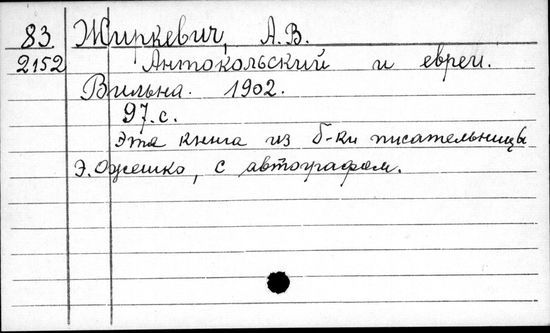 83 Жиркевич, А.В.
2152 Антокольский и евреи.
Вильна. 1902.
97.с.
Эта книга из б-ки писательницы
Э.Ожешко, с автографом.